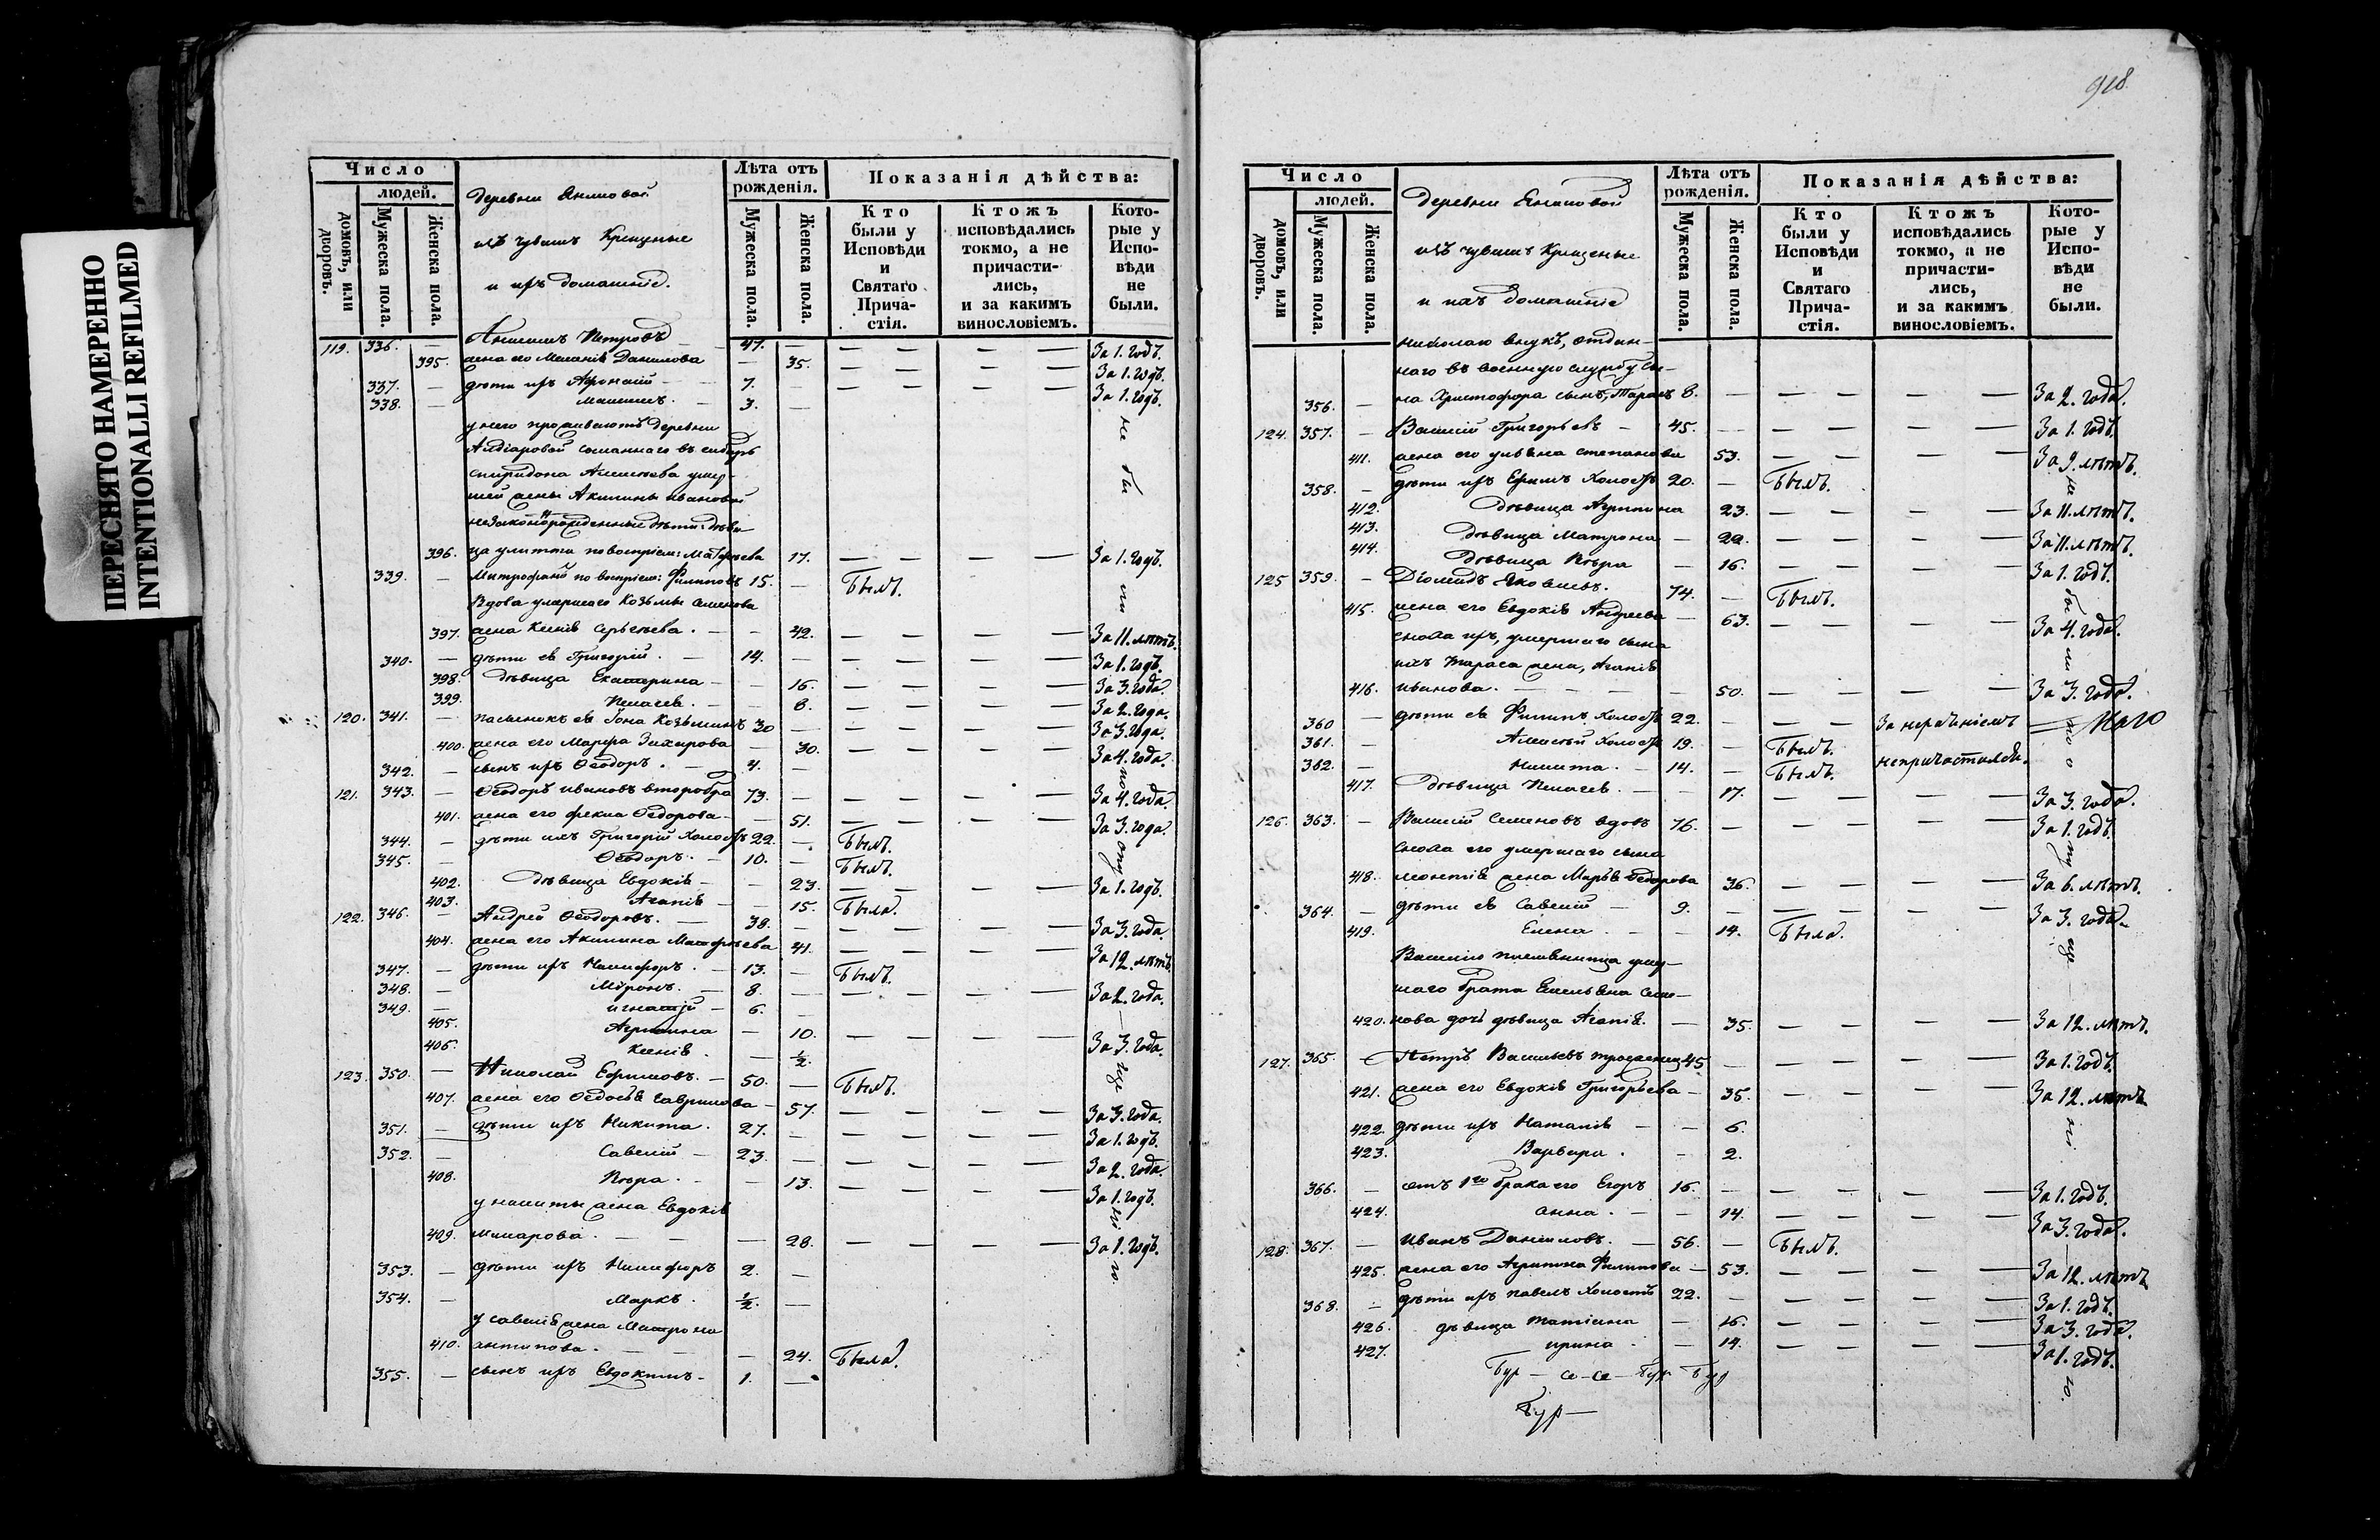 ПЕРЕСНЯТО НАМЕРЕННО
INTENTIONALLI REFILMED
Число
людей.
домовъ, или дворовъ.
Мужеска пола.
Женска пола.
Деревни
изъ чувашъ Крещеные
и ихъ домашніе.
Лѣта отъ рожденія.
Мужеска пола.
Женска пола.
Показанія дѣйства:
Кто были у Исповѣди и Святаго Прича-стія.
Ктожъ исповѣдались токмо, а не причасти-лись, и за какимъ винословіемъ.
Кото-рые у Испо-вѣди не были.
119. 336. — Петровъ — 47. — — — — За 1. годъ.
395. жена его Меланія Данилова — 35. — — — — За 1. годъ.
337. — дѣти ихъ Афонасій — 7. — — — — За 1. годъ.
338. — Максимъ. — 3. —
у него проживаютъ деревни
сосланнаго въ сибирь
спиридона умер-
шей жены Акилины ивановой
незаконорожденные дѣти: дѣви-
396. ца улитта по воспріем: Матфеева 17. — — — — За 1. годъ.
339. — Митрофанъ по воспріем: Филиповъ 15. — Былъ.
Вдова умершаго Козьмы Семенова
397. жена Ксенія Сергеева. — — 42. — — — — За 11. лѣтъ.
340. — дѣти ея Григорій. — 14. — — — — — За 1. годъ.
398. дѣвица Екатерина — — 16. — — — — За 3. года.
399. Пелагея. — — 8. — — — — За 2. года.
120. 341. — пасынокъ ея Іона Козьминъ 30 — — — — — За 3. года.
400. жена его Марфа Захарова — 30. — — — — За 4. года.
342. — сынъ ихъ Ѳеодоръ. — 4. —
121. 343. — Ѳеодоръ ивановъ второбра 73. — — — — — За 4. года.
401. жена его фекла Ѳедорова — 51. — — — — За 3. года.
344. — дѣти ихъ Григорій Холостъ 22. — Былъ.
345. — Ѳеодоръ. — 10. — Былъ.
402. Дѣвица Евдокія — — 23. — — — — За 1. годъ.
403. Агапія — — 15. Была.
122. 346. — Андрей Ѳеодоровъ. — 38. — — — — — За 3. года.
404. жена его Акилина Матфеева 41. — — — — За 12. лѣтъ.
347. — дѣти ихъ Никифоръ. — 13. — Былъ.
348. — Миронъ. — 8. — — — — — За 2. года.
349. — игнатій — 6. —
405. Агрипина — 10. — — — — За 3. года.
406. Ксенія. — ½.
123. 350. — Николай Ефимовъ. — 50. — Былъ.
407. жена его Ѳедосья Гаврилова — 57. — — — — За 3. года.
351. — дѣти ихъ Никита. 27. — — — — — За 1. годъ.
352. — Савелій — 23. — — — — — За 2. года.
408. Вѣра. — — 13. — — — — За 1. годъ.
у никиты жена Евдокія
409. макарова. — — — 28. — — — — За 1. годъ.
353. — дѣти ихъ Никифоръ 2. —
354. — Маркъ. ½. —
у савелія жена Матрона
410. антипова. — — — 24. Была.
355. — сынъ ихъ Евдокимъ — 1. —
918
Число
людей.
домовъ, или дворовъ.
Мужеска пола.
Женска пола.
Деревни
изъ чувашъ Крещеные
и ихъ домашніе
Лѣта отъ рожденія.
Мужеска пола.
Женска пола.
Показанія дѣйства:
Кто были у Исповѣди и Святаго Прича-стія.
Ктожъ исповѣдались токмо, а не причасти-лись, и за какимъ винословіемъ.
Кото-рые у Испо-вѣди не были.
николаю внукъ, отдан-
наго въ военную службу сы-
356. — на Христофора сынъ, Тарасъ 8. — — — — — За 2. года.
124. 357. — Василій Григорьевъ — 45. — — — — — За 1. годъ.
411. жена его ульяна степанова 53. — — — — За 9. лѣтъ.
358. — дѣти ихъ Ефимъ Холостъ 20. — Былъ.
412. Дѣвица Агрипина 23. — — — — За 11. лѣтъ.
413. Дѣвица Матрона — 22. — — — — За 11. лѣтъ.
414. Дѣвица Вѣра — 16. — — — — За 1. годъ.
125 359. — Діомидъ Яковлевъ. 74. — Былъ.
415. жена его Евдокія Андреева — 63. — — — — За 4. года.
сноха ихъ, умершаго сына
ихъ тараса жена, Агапія
416. иванова. — — — — 50. — — — — За 3. года.
360 — дѣти ея Филипъ Холостъ 22. — — — За нерадѣніемъ
361. — Алексѣй Холостъ 19. — Былъ. непричастился.
362. — Никита. — 14. — Былъ.
417. Дѣвица Пелагея. — — 17. — — — — За 3. года.
126. 363. — Василій Семеновъ вдовъ 76. — — — — — За 1. годъ.
сноха его умершаго сына
418. леонтія жена Марья Ѳедорова 36. — — — — За 6. лѣтъ.
364. — дѣти ея Савелій — 9. — — — — — За 3. года.
419. Елена. — — 14. Была.
Василію племянница умер-
шаго брата Емельяна Семе-
420. нова дочь дѣвица Агапія. — 35. — — — — За 12. лѣтъ.
127. 365. — Петръ Васильевъ троеженец 45. — — — — — За 1. годъ.
421. жена его Евдокія Григорьева — 35. — — — — За 12. лѣтъ
422. дѣти ихъ Наталія — — 6.
423. Варвара. — 2.
366. — отъ 1го брака его Егоръ 16. — — — — — За 1. годъ.
424. анна. — — 14. — — — — За 3. года.
128. 367. — Иванъ Даниловъ. — 56. — Былъ.
425. жена его Агрипина Филипова — 53. — — — — За 12. лѣтъ
368. — дѣти ихъ павелъ Холостъ 22. — — — — — За 1. годъ.
426. дѣвица татіана — 16. — — — — За 3. года.
427. ирина. — 14. — — — — За 1. годъ.